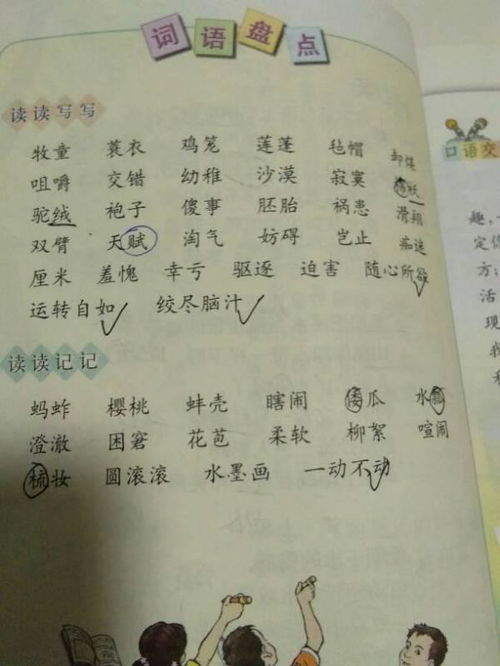 词语盘点
读读写写
牧童 蓑衣 鸡笼 莲蓬 毡帽 卸煤
咀嚼 交错 幼稚 沙漠 寂寞
驼绒 袍子 傻事 胚胎 祸患 滑翔
双臂 天赋 淘气 妨碍 岂止
厘米 羞愧 幸亏 驱逐 迫害 随心所欲
运转自如 绞尽脑汁
读读记记
蚂蚱 樱桃 蚌壳 瞎闹 倭瓜 水瓢
澄澈 困窘 花苞 柔软 柳絮 喧闹
梳妆 圆滚滚 水墨画 一动不动
口语交
趣,
定
方;
活
现